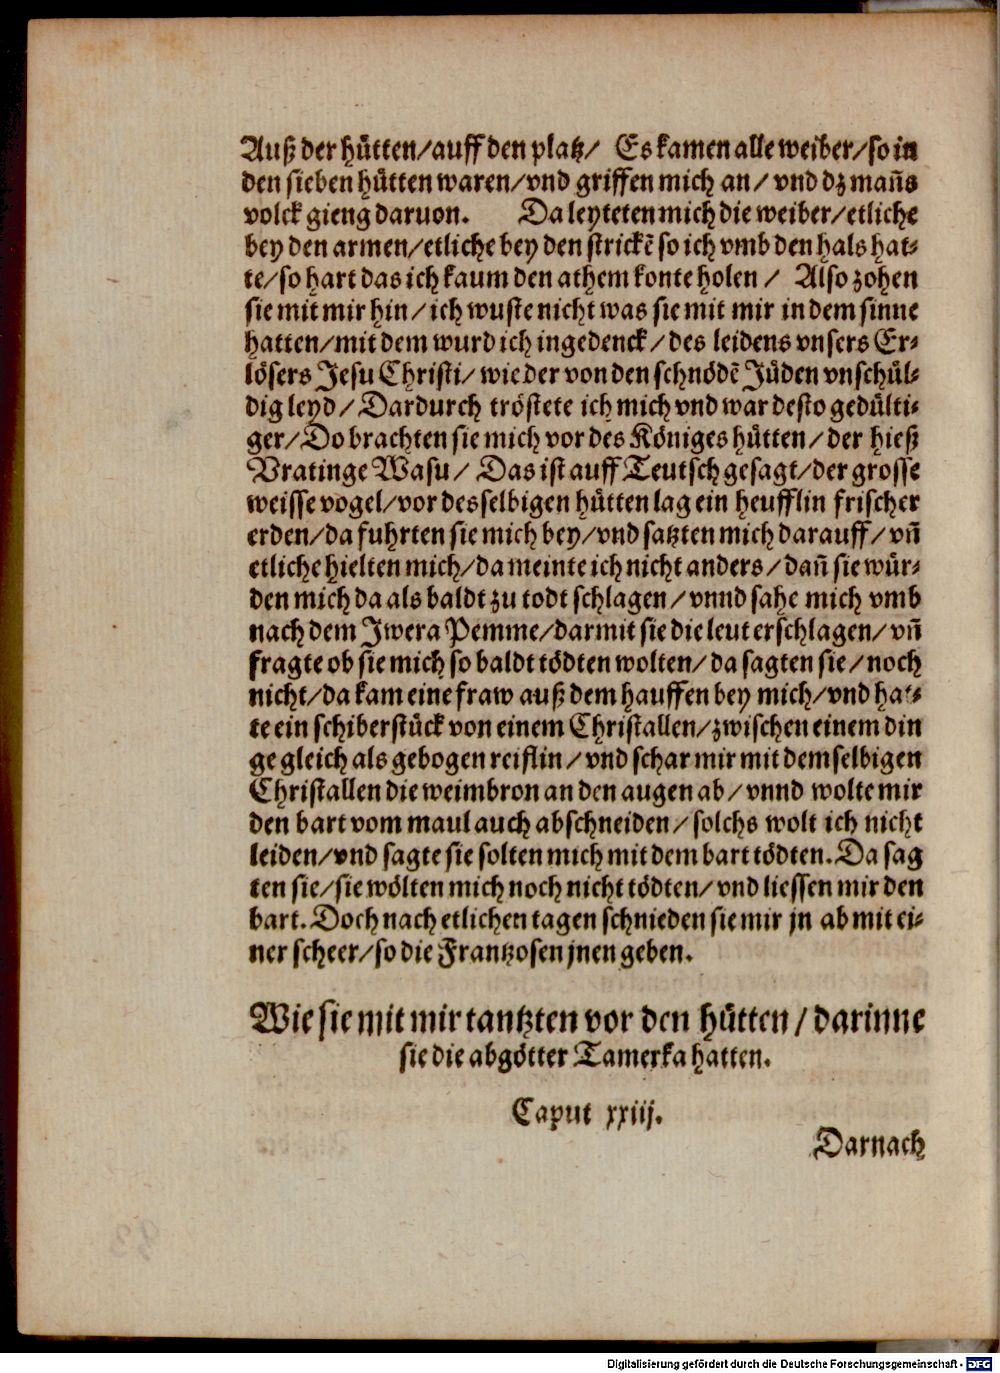 Auß der hütten/auff den platz/ Es kamen alle weiber/so in
den sieben hütten waren/vnd griffen mich an/ vnd dz mañs
volck gieng daruon. Da leyteten mich die weiber/etliche
bey den armen/etliche bey den strickẽ so ich vmb den hals hat⸗
te/so hart das ich kaum den athem konte holen/ Also zohen
sie mit mir hin/ich wuste nicht was sie mit mir in dem sinne
hatten/mit dem wurd ich ingedenck/des leidens vnsers Er⸗
lösers Jesu Christi/wie der von den schnödẽ Jüden vnschül⸗
dig leyd/Dardurch tröstete ich mich vnd war desto gedülti⸗
ger/Do brachten sie mich vor des Königes hütten/der hieß
Vratinge Wasu/ Das ist auff Teutsch gesagt/der grosse
weisse vogel/vor desselbigen hütten lag ein heufflin frischer
erden/da fuhrten sie mich bey/vnd satzten mich darauff/vñ
etliche hielten mich/da meinte ich nicht anders/dañ sie wür⸗
den mich da als baldt zu todt schlagen/vnnd sahe mich vmb
nach dem Iwera Pemme/darmit sie die leut erschlagen/vñ
fragte ob sie mich so baldt tödten wolten/da sagten sie/noch
nicht/da kam eine fraw auß dem hauffen bey mich/vnd hat⸗
te ein schiberstück von einem Christallen/zwischen einem din
ge gleich als gebogen reiflin/vnd schar mir mit demselbigen
Christallen die weimbron an den augen ab/vnnd wolte mir
den bart vom maul auch abschneiden/solchs wolt ich nicht
leiden/vnd sagte sie solten mich mit dem bart tödten. Da sag
ten sie/sie wölten mich noch nicht tödten/vnd liessen mir den
bart. Doch nach etlichen tagen schnieden sie mir jn ab mit ei⸗
ner scheer/so die Frantzosen jnen geben.
Wie sie mit mir tantzten vor den hütten/darinne
sie die abgötter Tamerka hatten.
Caput xxiij.
Darnach
Digitalisierung gefördert durch die Deutsche Forschungsgemeinschaft - DFG